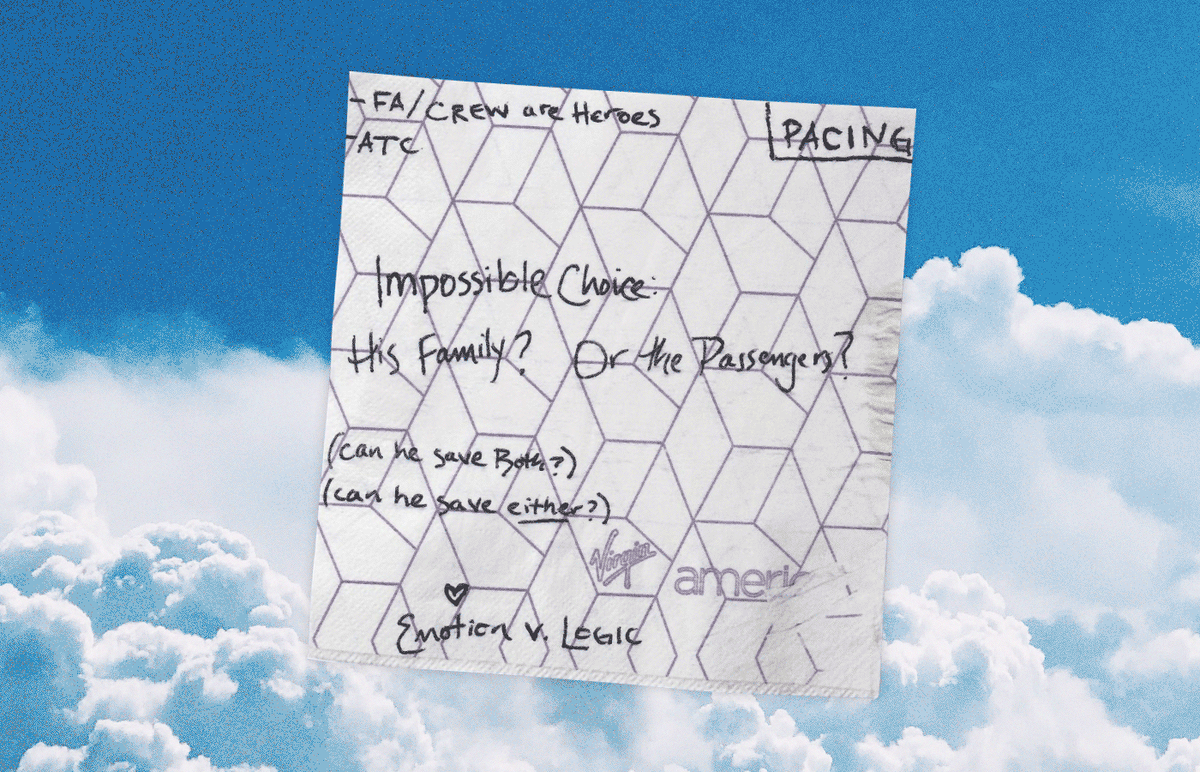 - FA/CREW are Heroes
PACING
- ATC
Impossible Choice:
His Family? Or the Passengers?
(can he save Both?)
(can he save either?)
Virgin
americ
Emotion v. LOGIC